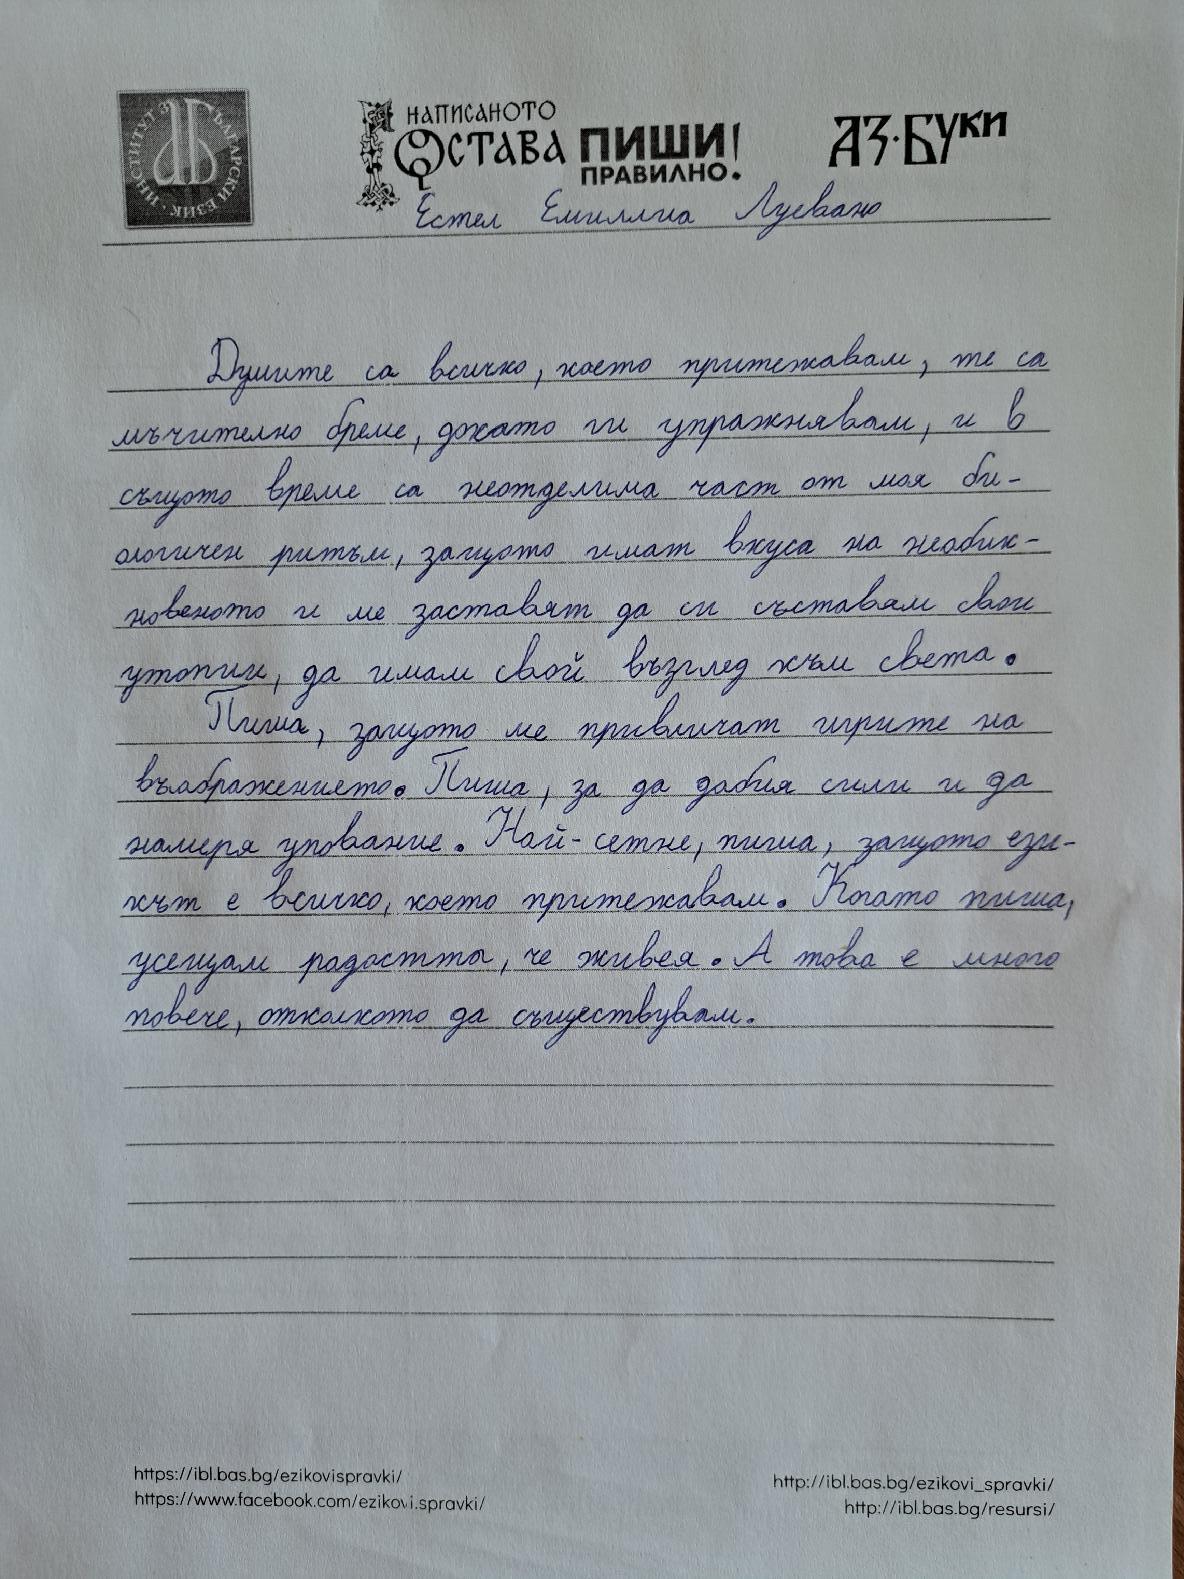 ИНСТИТУТ ЗА БЪЛГАРСКИ ЕЗИК
НАПИСАНОТО
ОСТАВА
ПИШИ!
ПРАВИЛНО.
АЗ·БУКИ
Естел Емиллиа Луевано
Думите са всичко, което притежавам, те са
мъчително бреме, докато ги упражнявам, и в
същото време са неотделима част от моя би-
ологичен ритъм, защото имат вкуса на необик-
новеното и ме заставят да си съставям свои
утопии, да имам свой възглед към света.
Пиша, защото ме привличат игрите на
въображението. Пиша, за да добия сили и да
намеря упование. Най-сетне, пиша, защото ези-
кът е всичко, което притежавам. Когато пиша,
усещам радостта, че живея. А това е много
повече, отколкото да съществувам.
https://ibl.bas.bg/ezikovispravki/
https://www.facebook.com/ezikovi.spravki/
http://ibl.bas.bg/ezikovi_spravki/
http://ibl.bas.bg/resursi/